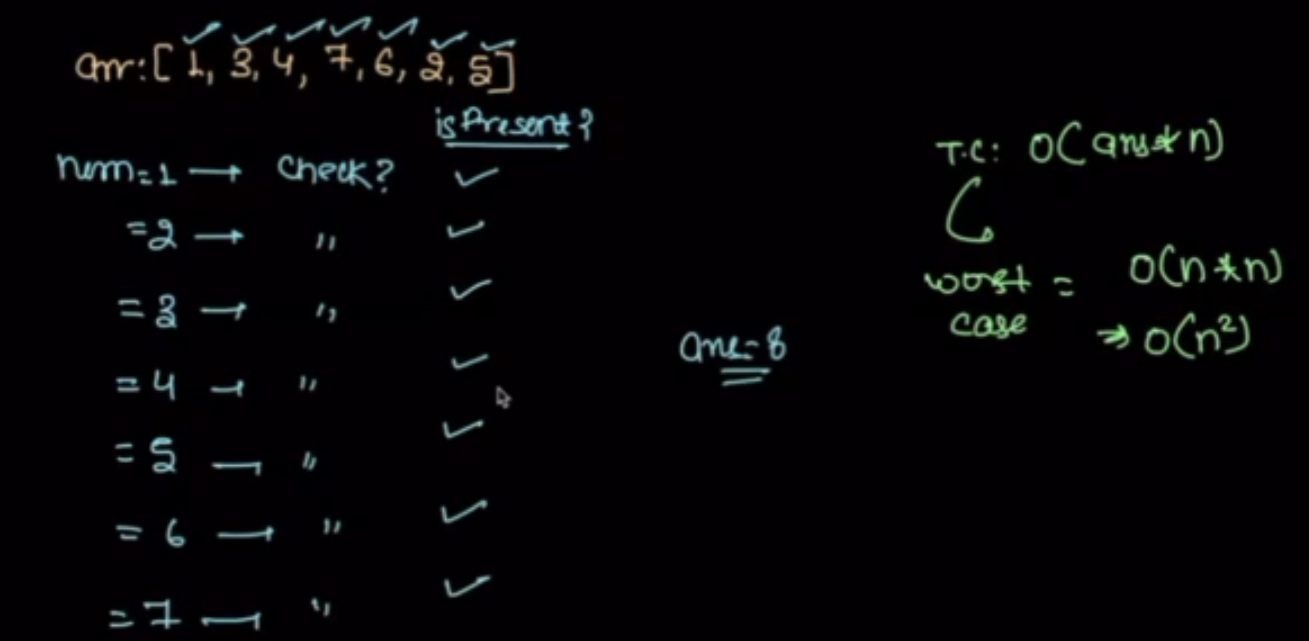 arr:[1, 3, 4, 7, 6, 2, 5]
isPresent?
num=1 → Check? ✓
=2 → " ✓
=3 → " ✓
=4 → " ✓
=5 — " ✓
=6 → " ✓
=7 — " ✓
ans=8
T.C: O(ans*n)
worst case = O(n*n)
→ O(n²)